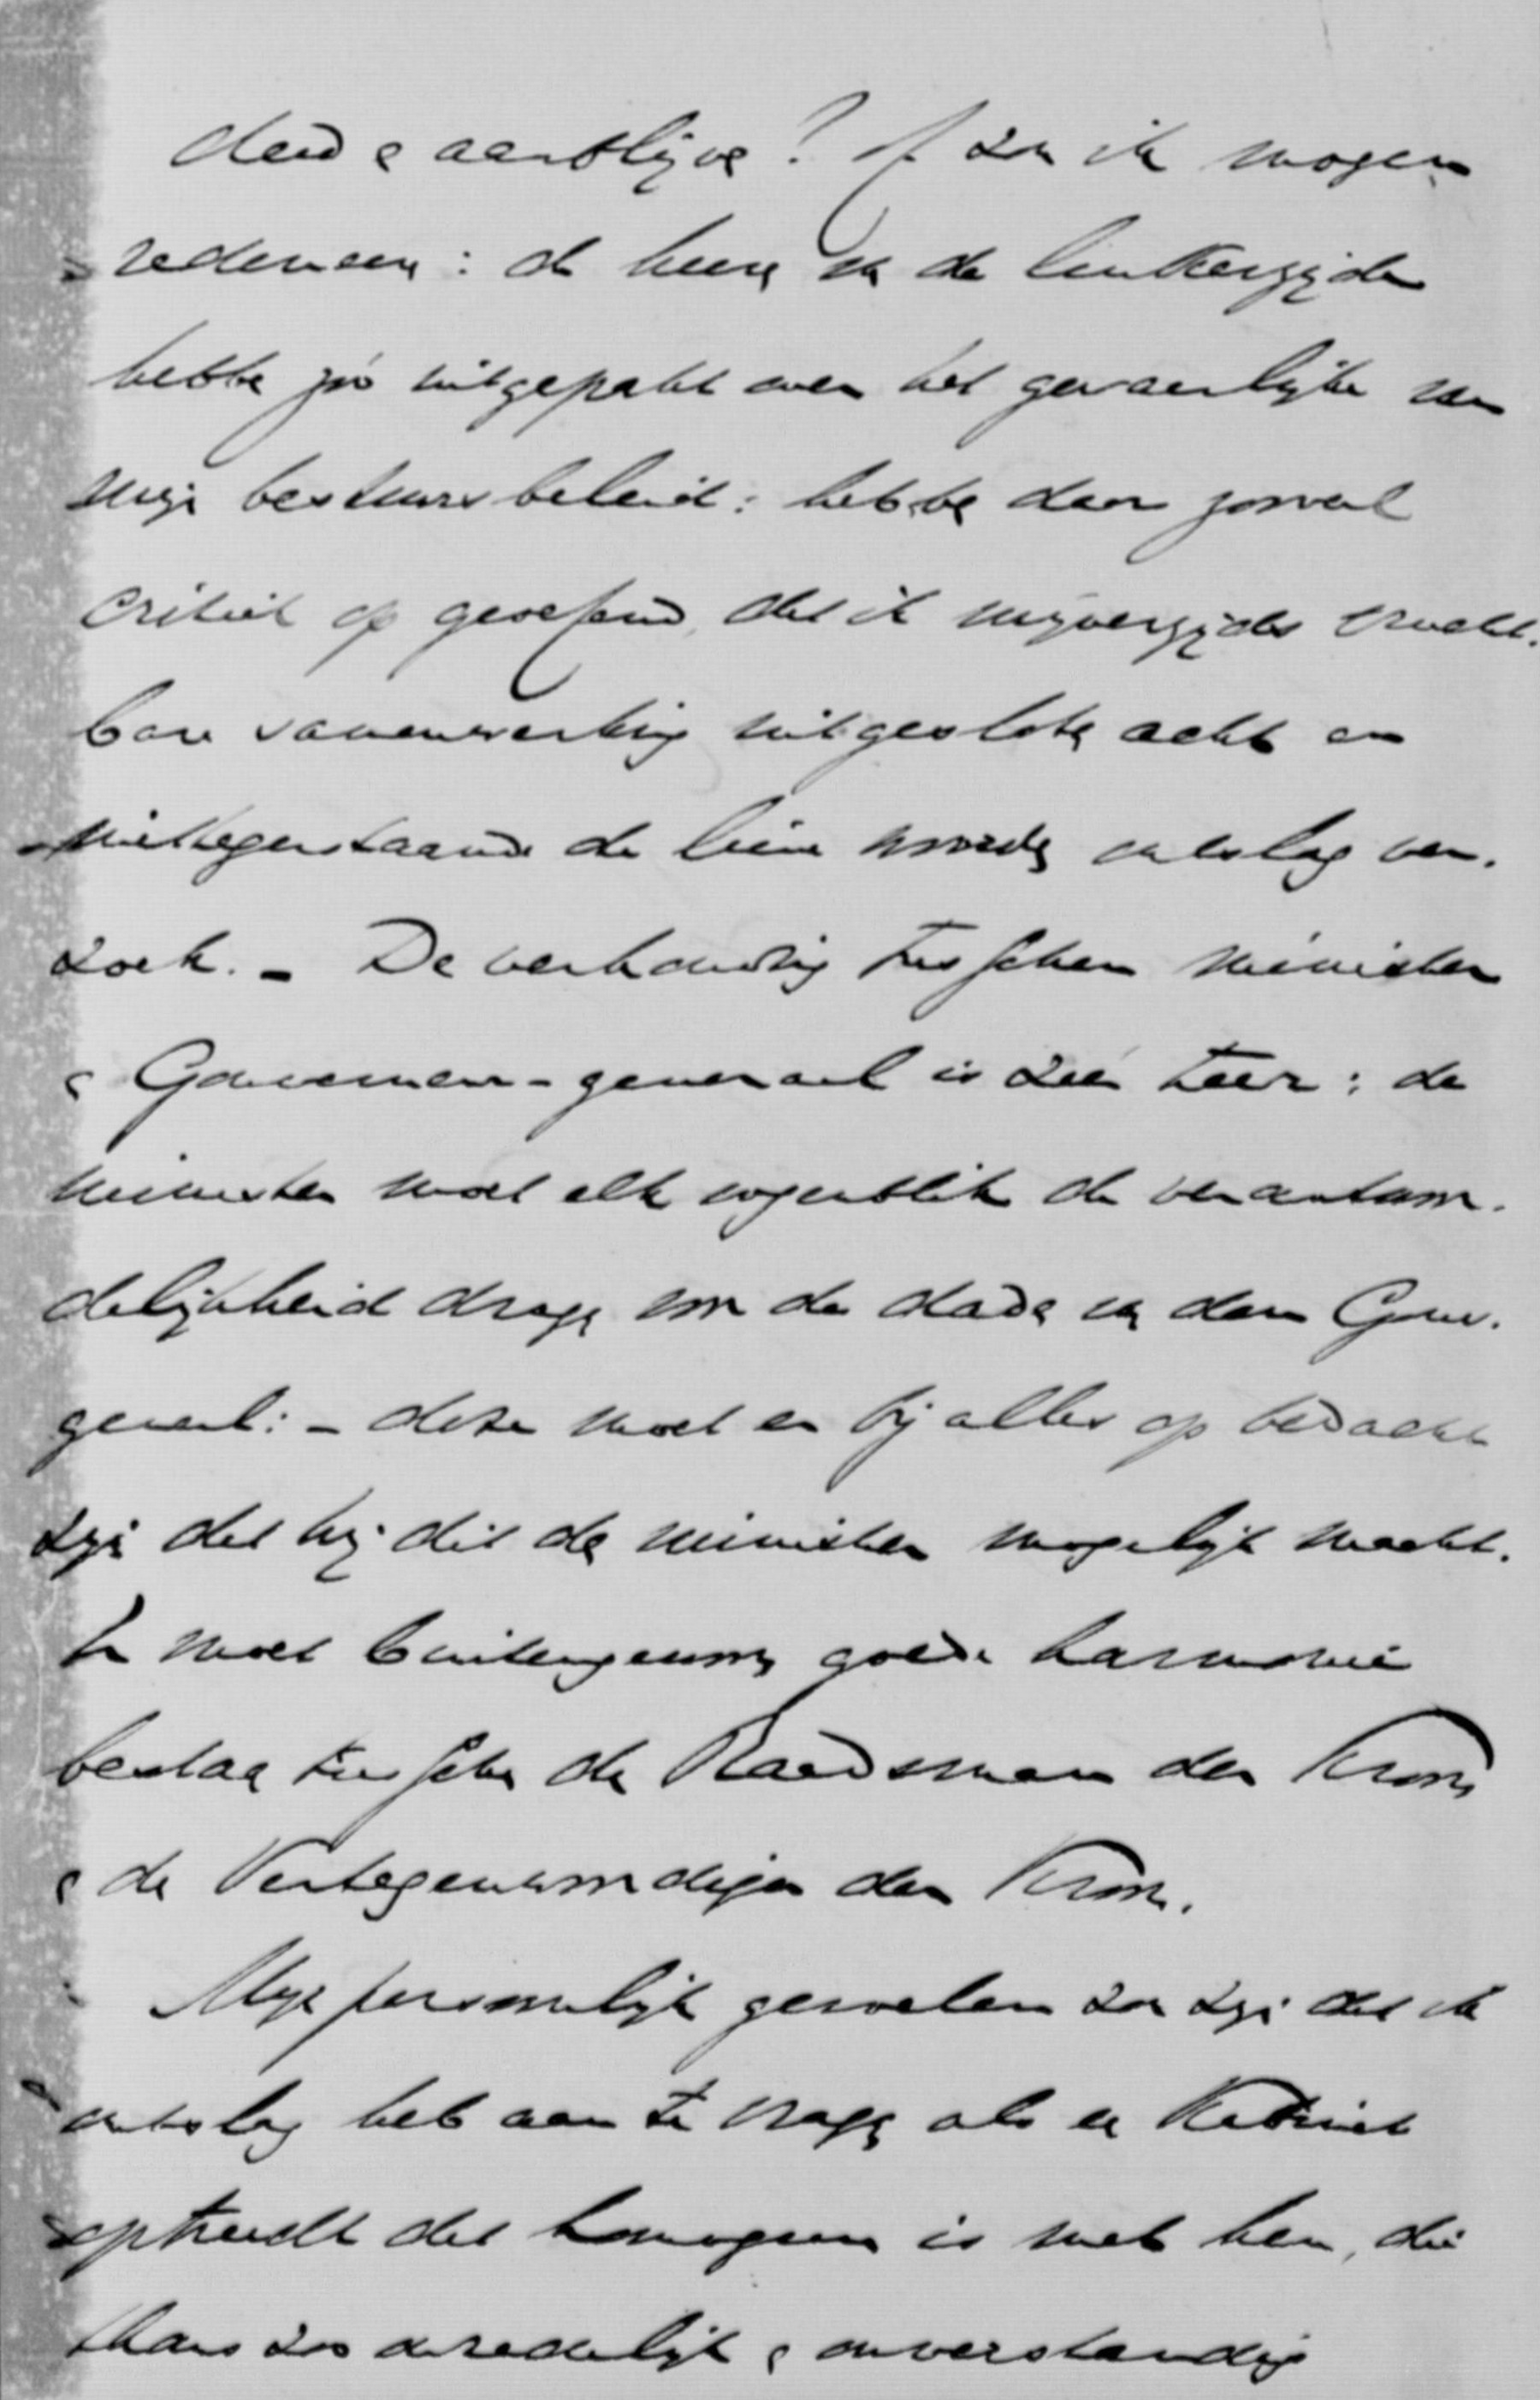 deed & aanblijve? Of zou ik mogen
redeneeren: de heeren van de linkerzijde
hebben zóó uitgepakt over het gevaarlijke van
mijn bestuursbeleid: hebben daar zooveel
critiek op geoefend, dat ik mijnerzijds vrucht-
bare samenwerking uitgesloten acht en
niettegenstaande de lieve woorden ontslag ver-
zoek. – De verhouding tusschen minister
& Gouverneur-generaal is zéér teer: de
minister moet elk oogenblik de verantwoor-
delijkheid dragen voor de daden van den Gouv.
generl: – deze moet er bij alles op bedacht
zijn dat hij dit den minister mogelijk maakt.
Er moet buitengewoon goede harmonie
bestaan tusschen den Raadsman der Kroon
& den Vertegenwoordiger der Kroon.
Mijn persoonlijk gevoelen zou zijn dat ik
ontslag heb aan te vragen als er een Kabinet
optreedt dat homogeen is met hen, die
thans zoo onredelijk & onverstandig